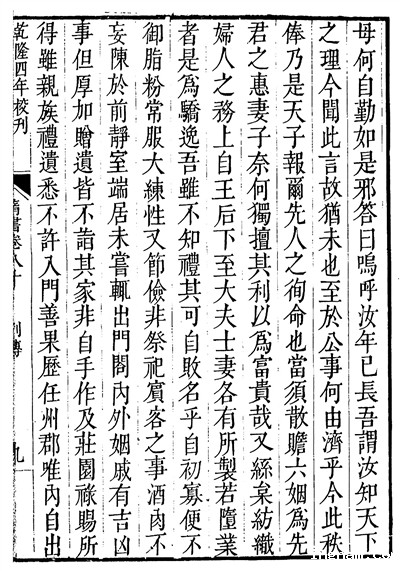 母何自勤如是邪答曰嗚呼汝年已長吾謂汝知天下
之理今聞此言故猶未也至於公事何由濟乎今此秩
俸乃是天子報爾先人之徇命也當須散贍六姻為先
君之惠妻子奈何獨擅其利以為富貴哉又絲枲紡織
婦人之務上自王后下至大夫士妻各有所製若墮業
者是為驕逸吾雖不知禮其可自敗名乎自初寡便不
御脂粉常服大練性又節儉非祭祀賓客之事酒肉不
妄陳於前靜室端居未嘗輒出門閤內外姻戚有吉凶
事但厚加贈遺皆不詣其家非自手作及莊園祿賜所
得雖親族禮遺悉不許入門善果歷任州郡唯內自出
乾隆四年校刊
隋書卷八十
列傳
九